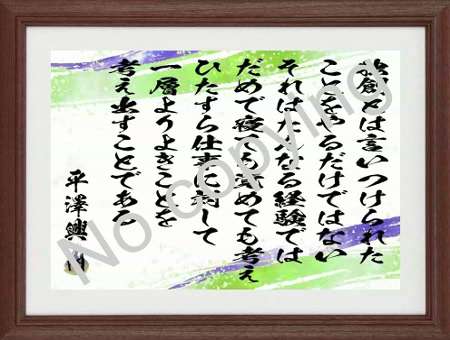 独創とは言いつけられた
ことをやるだけではない
それはたんなる経験では
だめで寝ても覚めても考え
ひたすら仕事に対して
一層よりよきことを
考え出すことである
平澤興
No copying